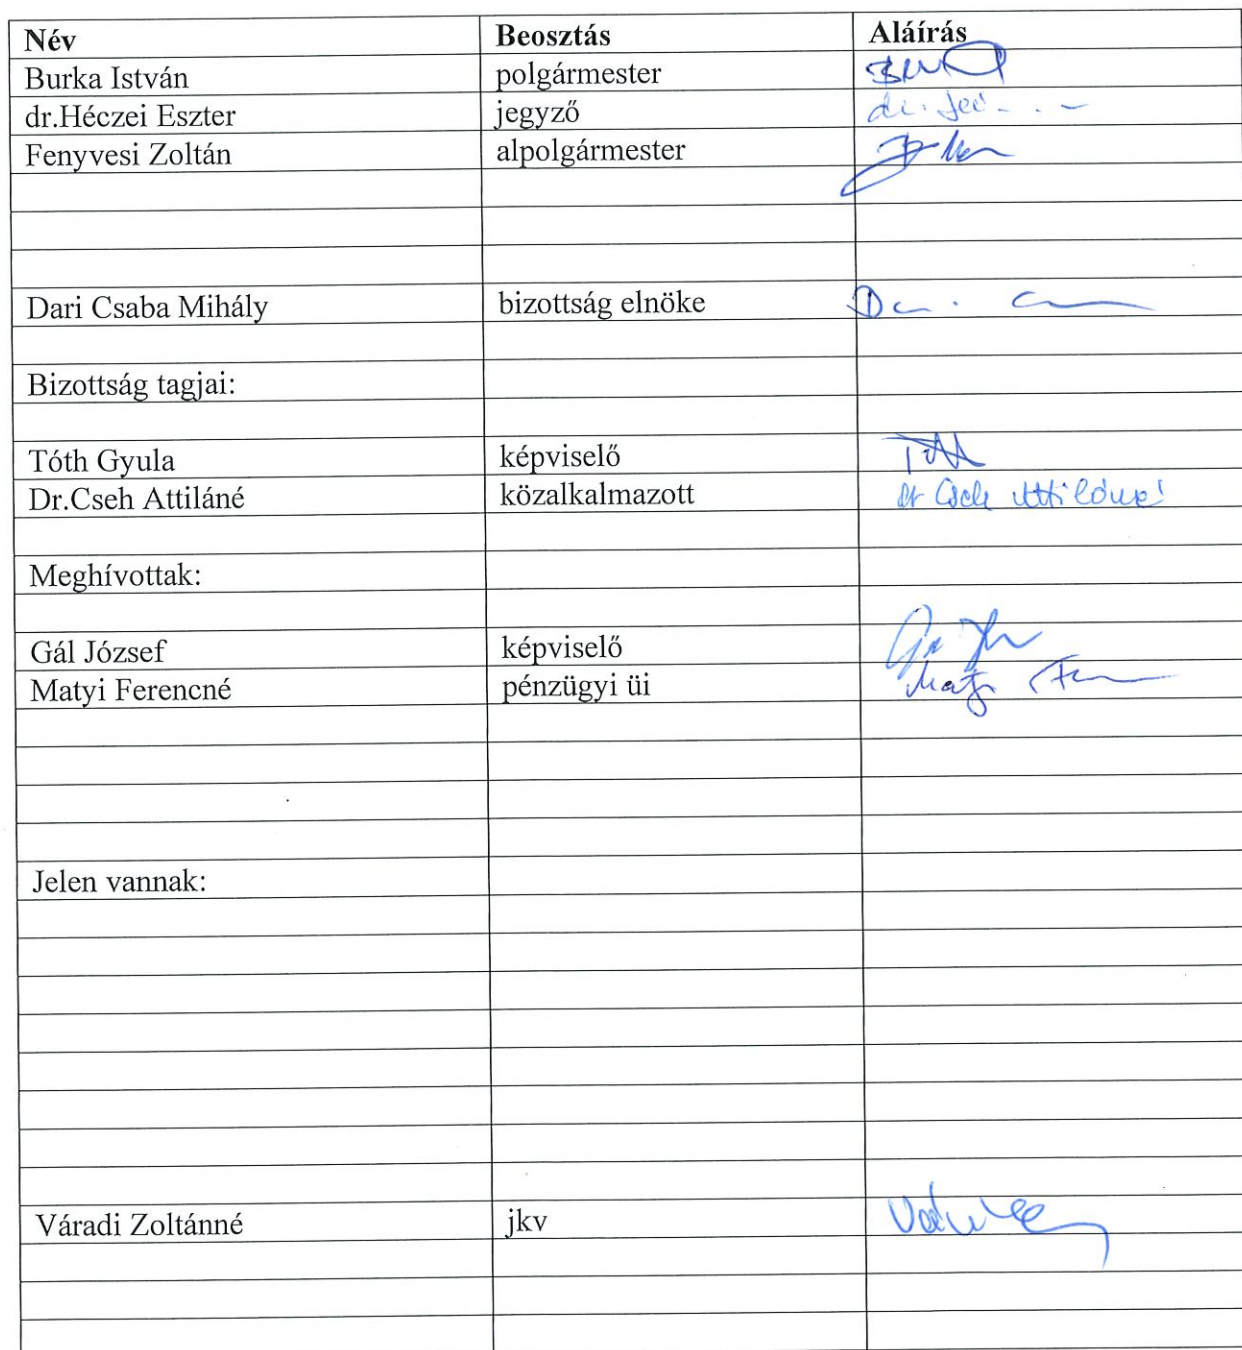 Név Beosztás Aláírás
Burka István polgármester
dr.Héczei Eszter jegyző
Fenyvesi Zoltán alpolgármester
Dari Csaba Mihály bizottság elnöke
Bizottság tagjai:
Tóth Gyula képviselő
Dr.Cseh Attiláné közalkalmazott dr Cseh Attiláné
Meghívottak:
Gál József képviselő
Matyi Ferencné pénzügyi üi
Jelen vannak:
Váradi Zoltánné jkv